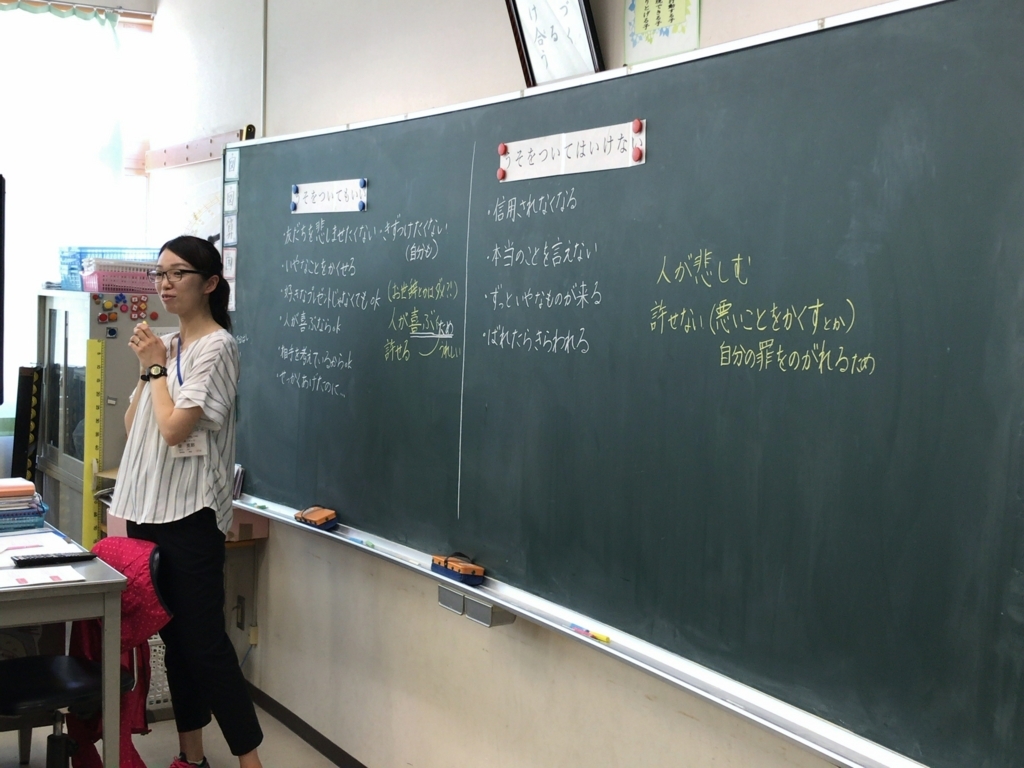 づく
る
け合う
うそをついてもいい
・友だちを悲しませたくない・きずつけたくない
(自分も)
・いやなことをかくせる
・好きなプレゼントじゃなくてもok
(お世辞とかはダイジ)
・人が喜ぶならok
人が喜ぶため
・相手を考えているからok
許せる
うれしい
・せっかくあげたのに…
うそをついてはいけない
・信用されなくなる
・本当のことを言えない
・ずっといやなものが来る
・ばれたらきらわれる
人が悲しむ
許せない(悪いことをかくすとか)
自分の罪をのがれるため